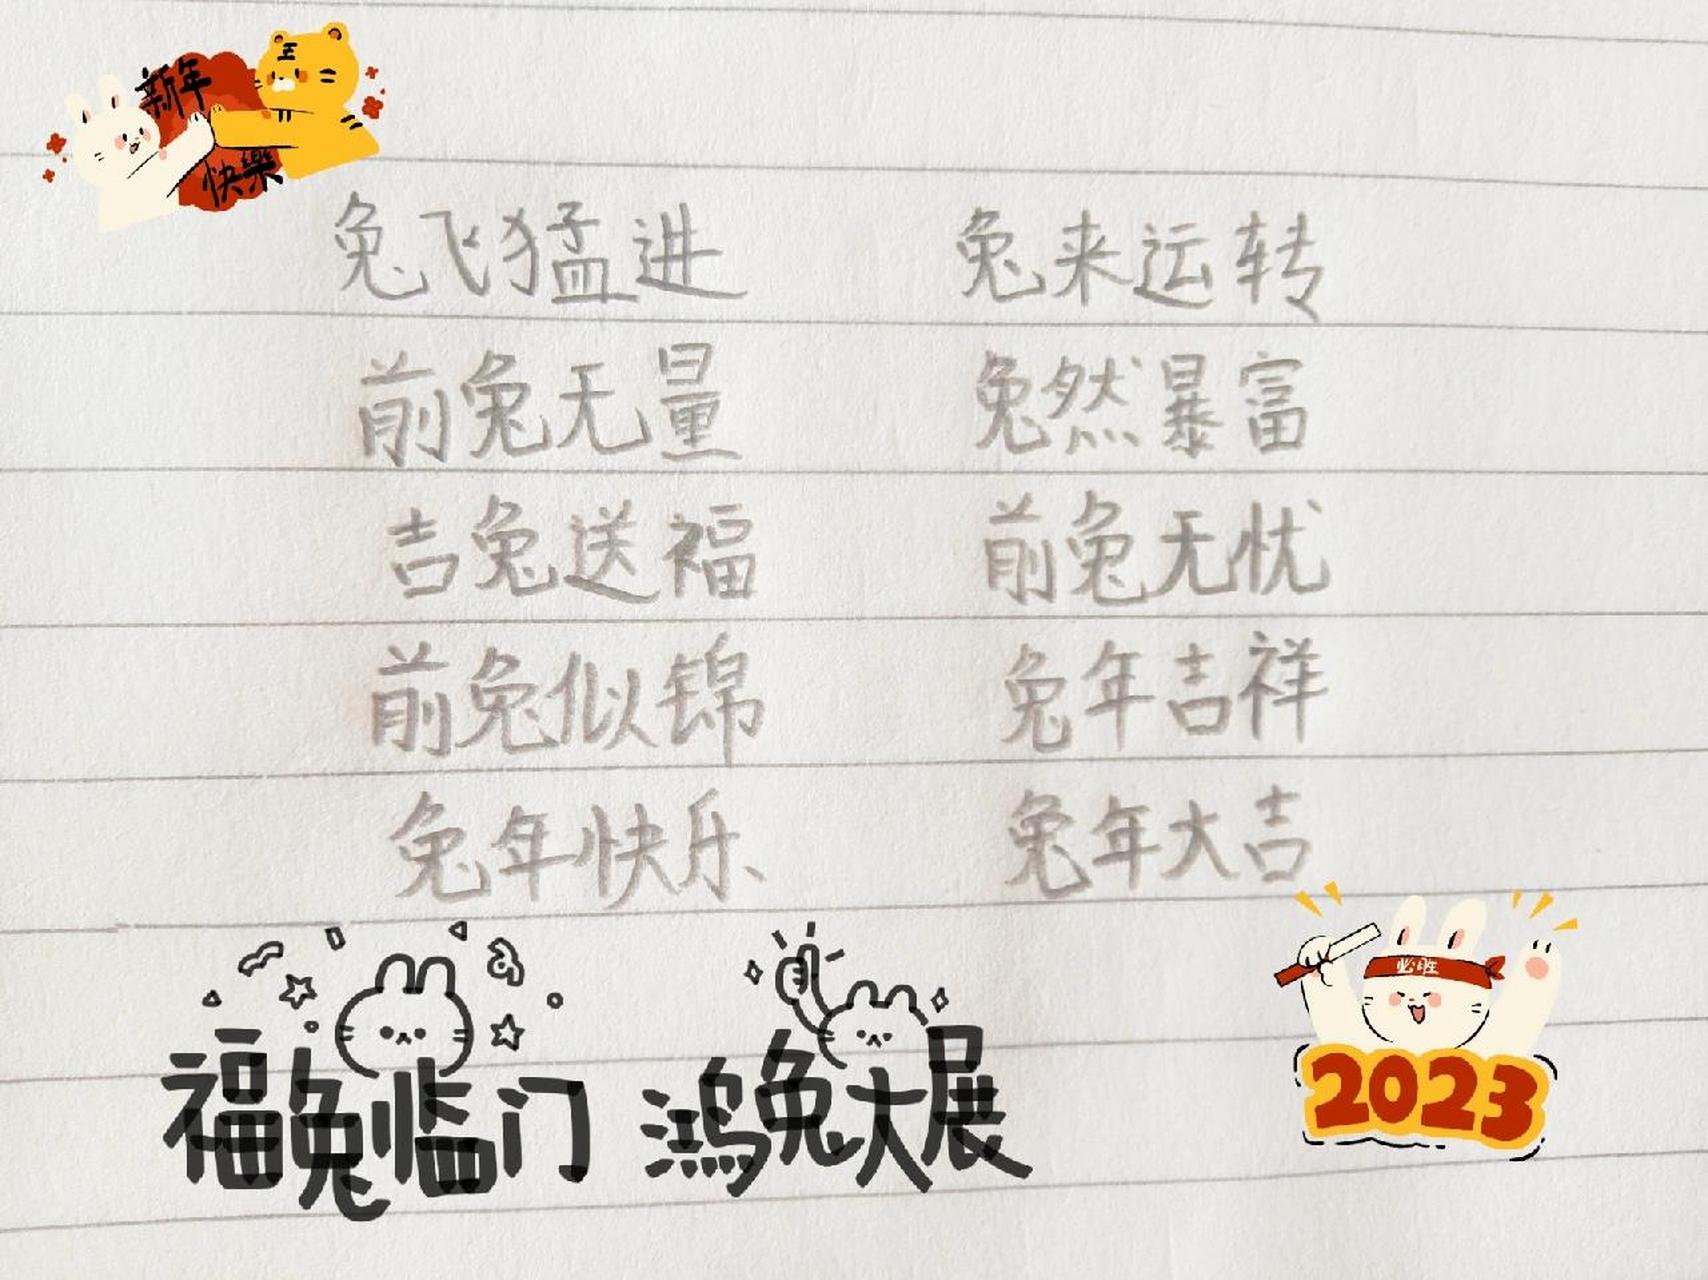 新年
快樂
王
兔飞猛进 兔来运转
前兔无量 兔然暴富
吉兔送福 前兔无忧
前兔似锦 兔年吉祥
兔年快乐 兔年大吉
必胜
福兔临门 鸿兔大展
2023